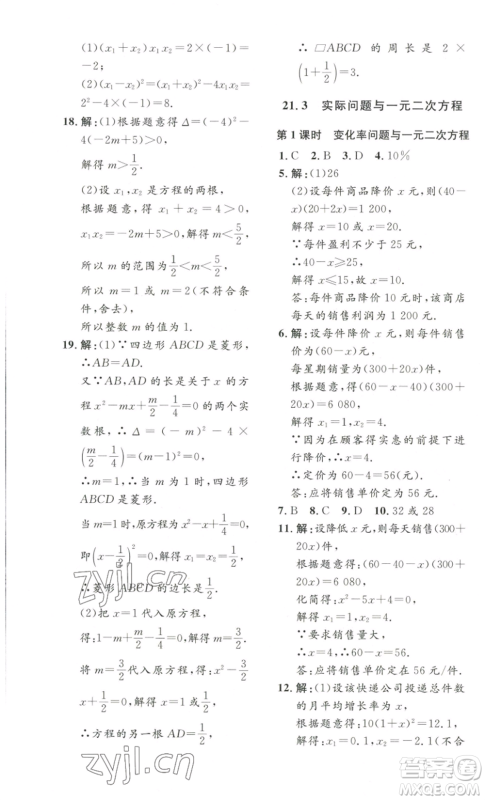 (1)(x₁+x₂)x₁x₂=2×(-1)=
-2;
(2)(x₁-x₂)²=(x₁+x₂)²-4x₁x₂=
2²-4×(-1)=8.
18. 解:(1)根据题意得Δ=(-4)²-
4(-2m+5)>0,
解得 m>1/2.
(2)设 x₁,x₂ 是方程的两根,
根据题意,得 x₁+x₂=4>0,
x₁x₂=-2m+5>0,解得 m<5/2,
所以 m 的范围为 1/2<m<5/2.
所以 m=1 或 m=2(不符合条
件,舍去).
所以整数 m 的值为 1.
19. 解:(1)∵四边形 ABCD 是菱形,
∴AB=AD.
又∵AB、AD 的长是关于 x 的
方程 x²-mx+m/2-1/4=0 的两个实
数根,∴Δ=(-m)²-4×
(m/2-1/4)=0,
∴m=1,∴当 m=1 时,四边形
ABCD 是菱形.
当 m=1 时,原方程为 x²-x+1/4=0,
即(x-1/2)²=0,解得 x=1/2,
∴菱形 ABCD 的边长是 1/2.
(2)把 x=1 代入原方程,
得:1-m+m/2-1/4=0,解得:m=3/2.
将 m=3/2 代入原方程,得:x²-3/2
x+1/2=0,解得 x₁=1,x₂=1/2,
∴方程的另一根 AD=1/2,
∴□ABCD 的周长是 2×
(1+1/2)=3.
21.3 实际问题与一元二次方程
第 1 课时 变化率问题与一元二次方程
1. C 2. B 3. D 4. 10%
5. 解:(1)26
(2)设每件商品降价 x 元,则(40-
x)(20+2x)=1 200,
解得 x=10 或 x=20.
∵每件盈利不少于 25 元,
∴40-x≥25,
解得 x≤15,故 x=10.
答:每件商品降价 10 元时,该商店
每天的销售利润为 1 200 元.
6. 解:设每件降价 x 元,则每件销售
价为(60-x)元,
每星期销量为(300+20x)件,
根据题意得(60-x-40)(300+
20x)=6 080,
解得 x₁=1,x₂=4.
∵因为在顾客得实惠的前提下进
行降价,∴x=4.
∴定价为 60-4=56(元).
答:应将销售单价定为 56 元.
7. B 8. C 9. D 10. 32 或 28
11. 解:设降低 x 元,则销售量为(300+
20x)件,
根据题意得(60-x-40)(300+
20x)=6 080,
化简得:x²-5x+4=0,
解得:x₁=1,x₂=4.
∵要求销售量大,
∴x=4,60-x=56.
答:应将销售单价定为 56 元/件.
12. 解:(1)设该快递公司投递总件数
的月平均增长率为 x,
根据题意得:10(1+x)²=12.1,
解得:x₁=0.1,x₂=-2.1(不合
zyjl.cn
zyjl.cn
答案圈
MXQE.COM